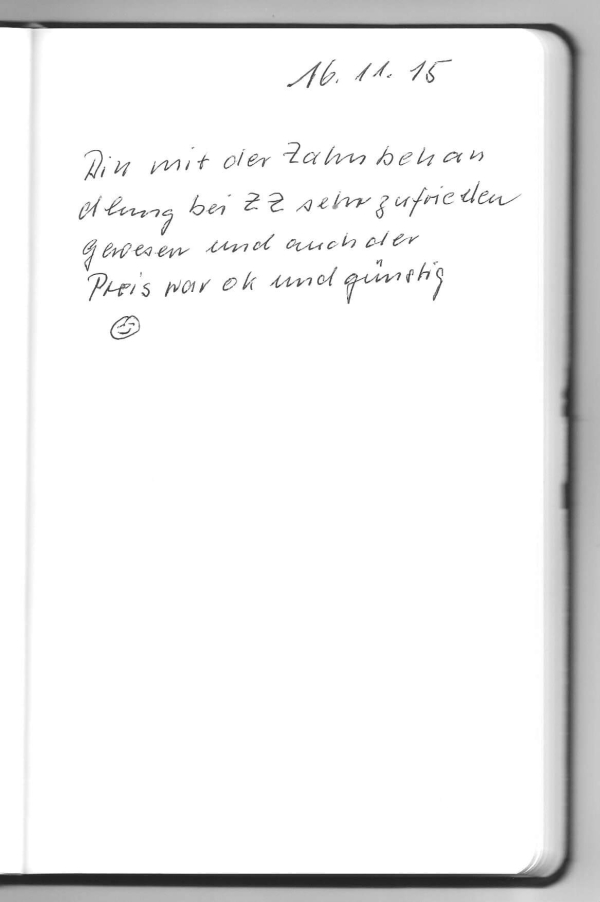 16. 11. 15
Bin mit der Zahnbehan
dlung bei ZZ sehr zufrieden
gewesen und auch der
Preis war ok und günstig